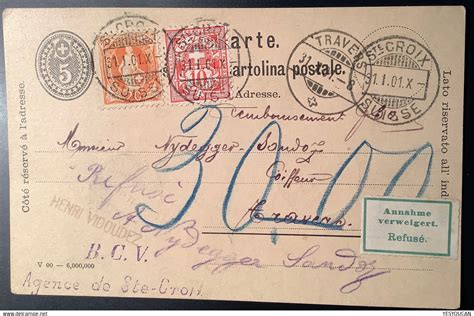 5
STE CROIX
31.I.01.X
SUISSE
10
STE CROIX
31.I.01.X
SUISSE
TRAVERS
31.I.
STE CROIX
31.I.01.X
SUISSE
karte.
Cartolina postale.
Adresse.
Côté réservé à l'adresse.
Lato riservato all' ind
Remboursement
Monsieur Nydegger-Sandoz
Coiffeur
Travers
30,00
Refusé
A Nydegger Sandoz
HENRI VIDOUDEZ
B.C.V.
V 00 — 6,000,000
Agence de Ste-Croix
Annahme
verweigert.
Refusé.
YESYOUCAN